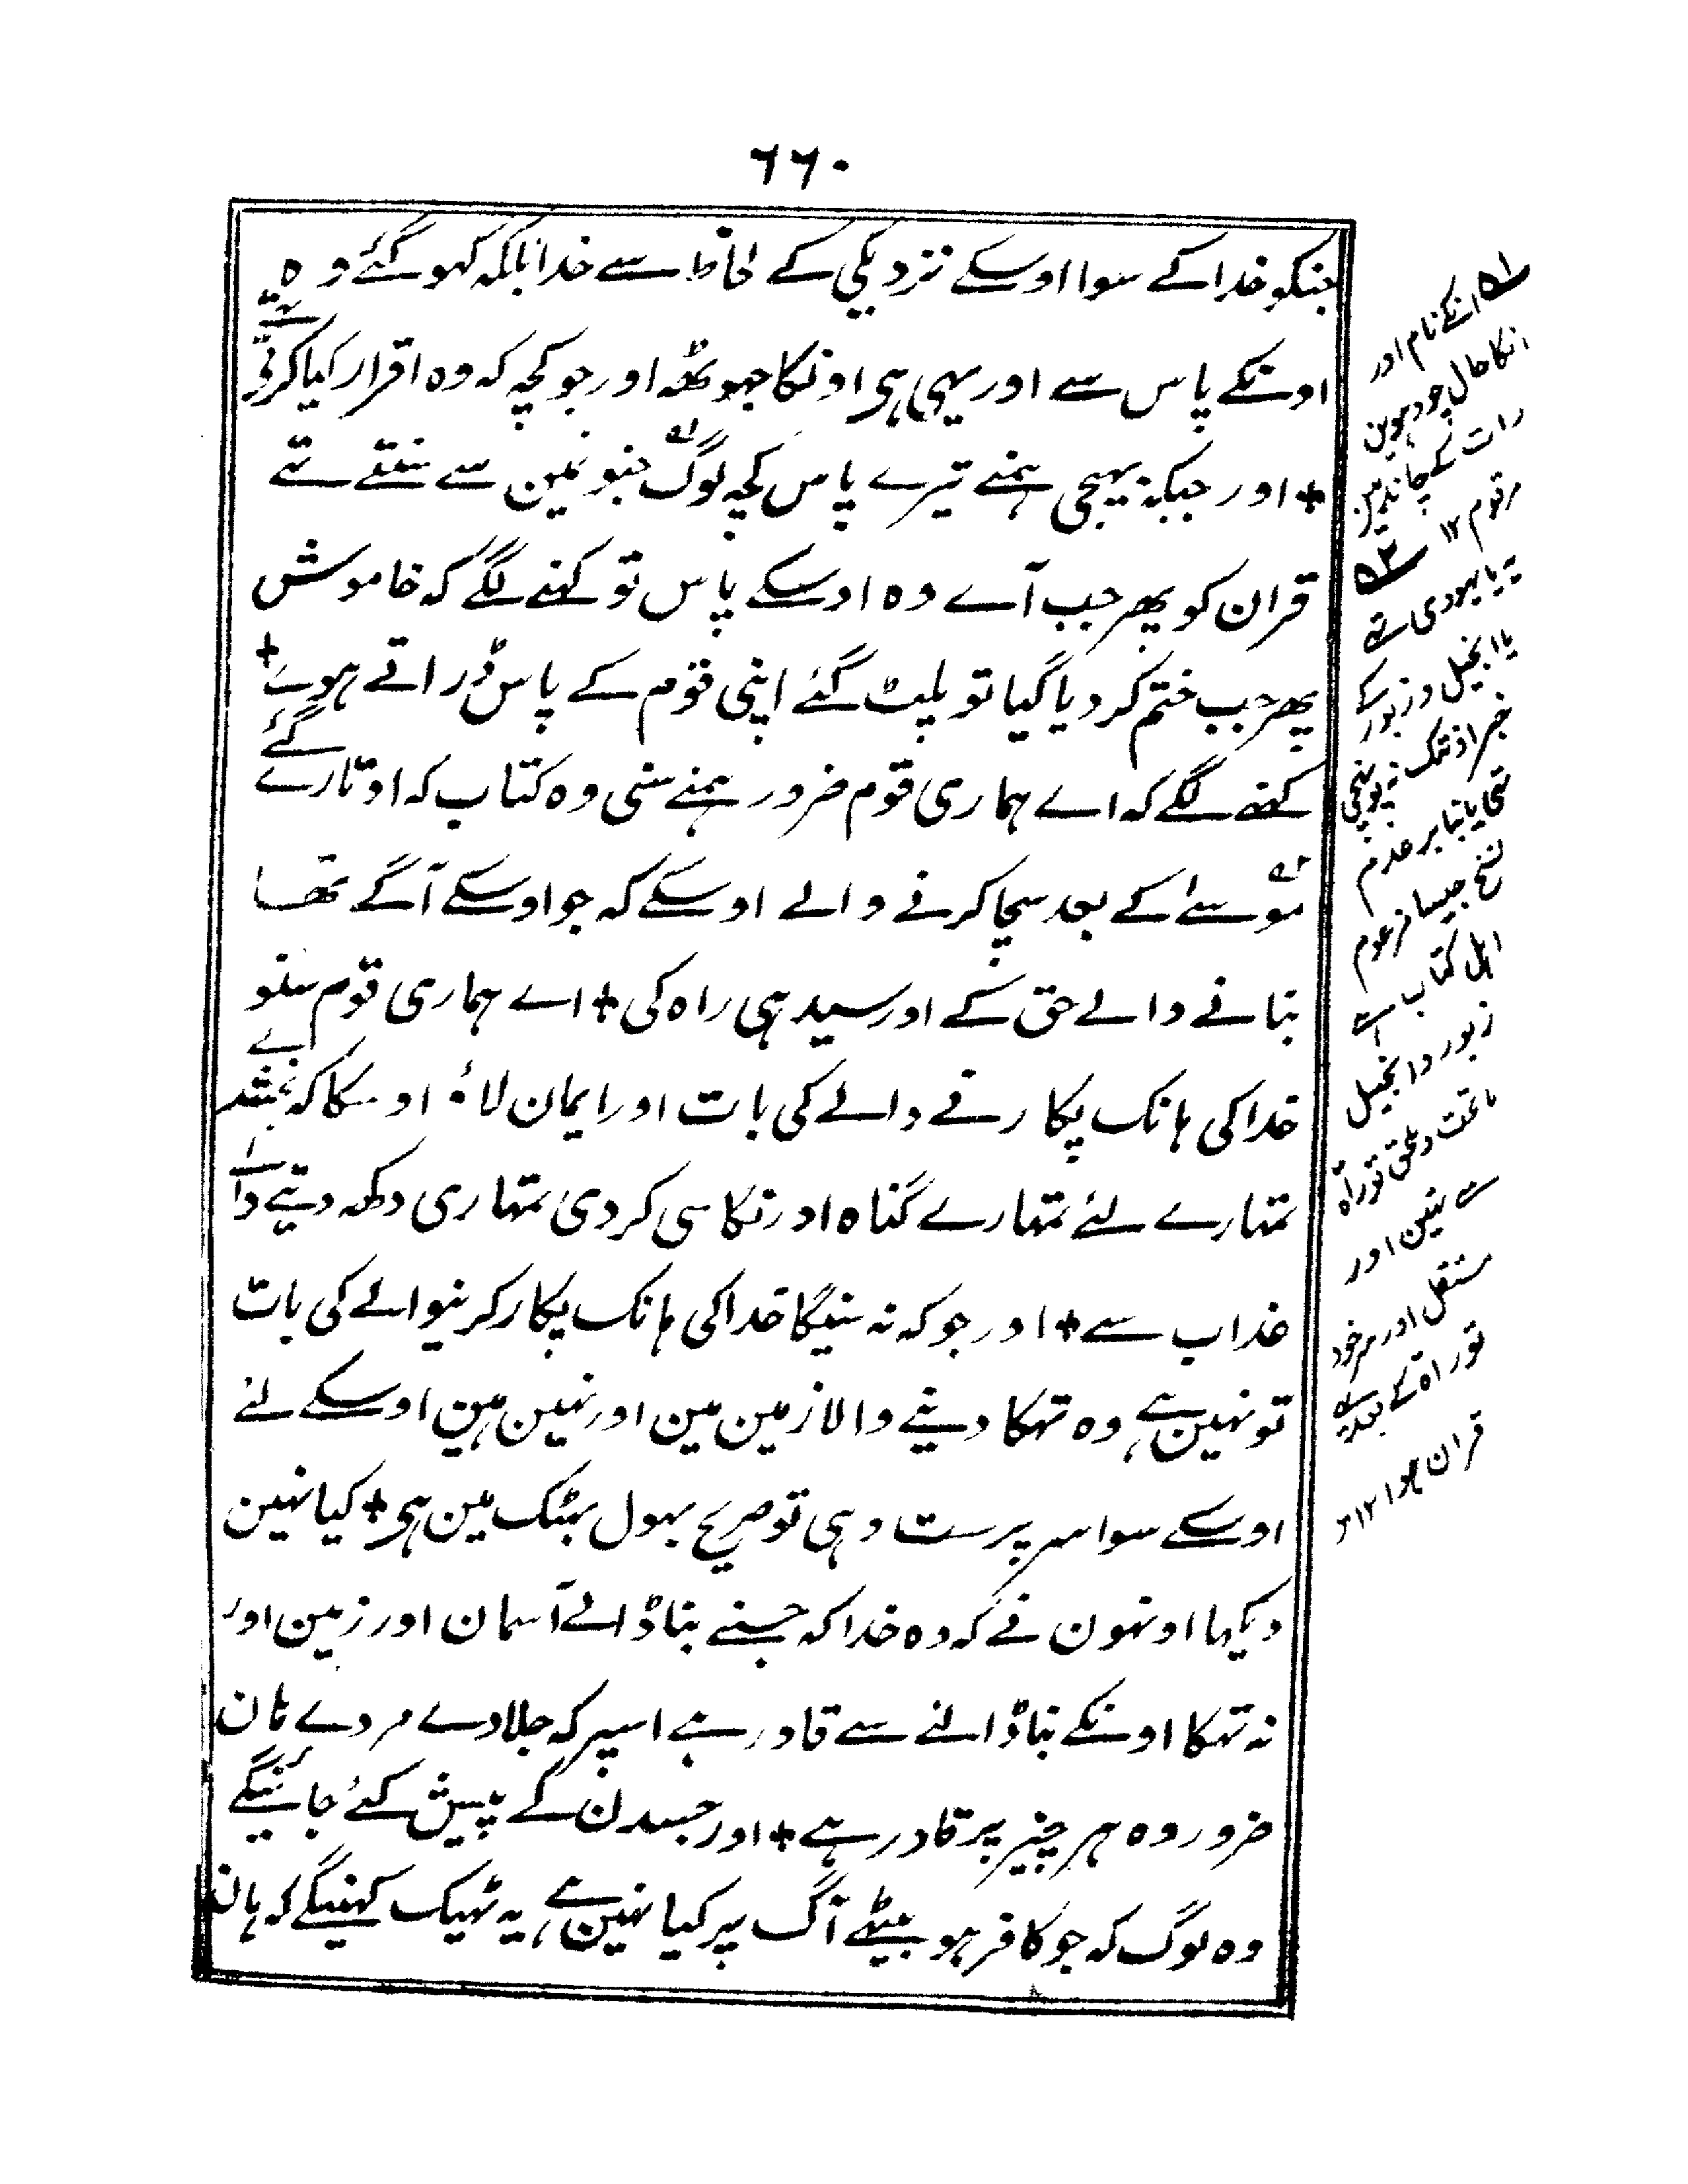 ٦٦٠
جنکو خدا کے سوا اوسکے نزدیکی کے لحاظ سے خدا بلکہ کہو گئے وہ
اونکے پاس سے اور یہی ہی اونکا جہوٹھہ اور جو کچہ کہ وہ اقرار کیا کرتے تہے
+ اور جبکہ بہیجی ہمنے تیرے پاس کچہ لوگ جنونمین سے سنتے تہے
قران کو پھر جب آے وہ اوسکے پاس تو کہنے لگے کہ خاموش
پھر جب ختم کر دیا گیا تو پلیٹ گئے اپنی قوم کے پاس ڈراتے ہوے +
کہنے لگے کہ اے ہماری قوم ضرور ہمنے سنی وہ کتاب کہ اوتارے گئے
موسےٰ کے بعد سچا کرنے والے اوسکے کہ جو اوسکے آگے تھا
بتانے والے حق کے اور سیدہی راہ کی + اے ہماری قوم سنو
خدا کی ہانک پکارنے والے کی بات اور ایمان لاؤ اوسکا کہ بخشدے
تمہارے لئے تمہارے گناہ اور نکاسی کر دی تمہاری دکھہ دیتے
عذاب سے + اور جو کہ نہ سنیگا خدا کی ہانک پکار کرنیوالے کی بات
تو نہین ہے وہ تہکا دینے والا زمین مین اور نہین ہین اوسکے لئے
اوسکے سوا سرپرست وہی تو صریح بہول بہٹک مین ہی + کیا نہین
دیکہا اونہون نے کہ وہ خدا کہ جسنے بنا ڈالے آسمان اور زمین اور
نہ تہکا اونکے بنا ڈالنے سے قادر ہے اسپر کہ جلا دے مردے ہان
ضرور وہ ہر چیز پر قادر ہے + اور جسدن کے پیش کئے جائینگے
وہ لوگ کہ جو کافر ہو بیٹھے آگ پر کیا نہین ہے یہ ٹھیک کہینگے کہ ہان
انکے نام اور
انکا حال چودہوین
رات کے چاند مین
مرقوم ١٢
یہ یا یہودی تہے
یا انجیل و زبور کے
خبر اونتک نہ پہونچی
تہی یا بنابر عدم
نسخ جیسا مزعوم
اہل کتاب ہے
زبور و انجیل
ماتحت و ملحق توراۃ
ہین اور
مستقل اور
توراۃ کے بعد یہ
قران ہوا ١٢